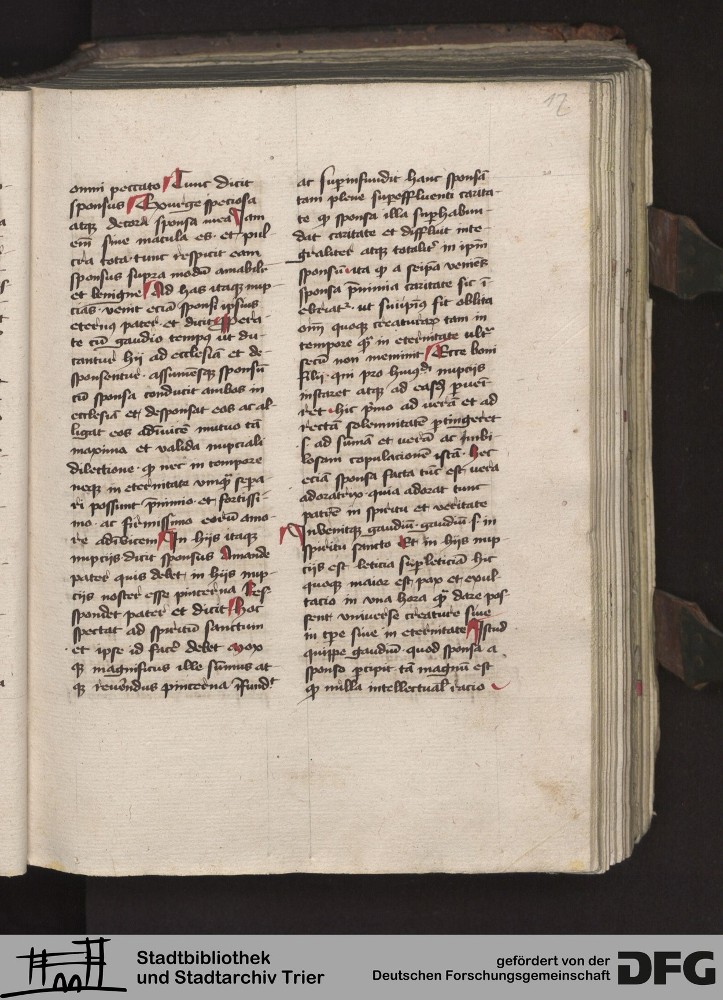 12
omni peccato Tunc dicit
sponsus Sourge speciosa
atqꝫ decora sponsa mea Jam
em̄ sine macula es et pul
cra tota tunc respicit eam
sponsus supra modū amabilr̄
et benigne Ad has itaqꝫ nup
cias venit eciā sponsi ipsius
eternꝰ pater et dicit Spera
te cū gaudio tempꝰ ut du
cantur hij ad ecclesiā et de
sponsentur assumēsqꝫ sponsū
cū sponsa conducit ambos in
ecclesiā et desponsat eos ac al
ligat eos adīuicē mutuo tā
maxima et valida nupciali
dilectione qꝫ nec in tempore
neqꝫ in eternitate vnqꝫ sepa
ri possunt p̄nimio et fortissi
mo ac firmissimo eorū amo
re adīuicem In hijs itaqꝫ
nupcijs dicit sponsus Amande
pater quis debet in hijs nup
cijs noster esse pincerna Res
pondet pater et dicit Hoc
spectat ad spiritū sanctum
et ipse id facē debet Mox
qꝫ magnificus ille sūmus at
qꝫ reuēndus pincerna īfundt
ac supinfundit hanc sponsā
tam plene supeffluenti carita
te qꝫ sponsa illa suphabun
dat caritate et diffluit inte
graliter atqꝫ totalitʳ in ipm̄
sponsū ita qꝫ a seipa veniēs
sponsa p̄nimia caritate sic ī
ebriatʳ ut suiipiꝰ sit oblita
om̄ quoqꝫ creaturarꝫ tam in
tempore qꝫ in eternitate ultʳ
secū non meminit Ecce boni
filij qui pro huiꝰdi nupcijs
instaret atqꝫ ad easdē puen̄
ret hic p̄mo ad verā et ad
rectā solemnitatē ptingeret
s ad sūmā et verā ac Jmbi
losam copulacionē istā hec
eciā sponsa facta tūc est vera
adoratrix quia adorat tunc
patrē in spiritu et veritate
Inuenitqꝫ gaudiū gaudiū s in
spiritu sancto Et in hijs nup
cijs est leticia sup leticiā hic
quoqꝫ maior est pax et exul
tacio in vna hora qꝫ dare pos
sent vniuerse creature siue
in tpe siue in eternitate Istud
quippe gaudiū quod sponsa a
sponso pcipit tā magnū est
qꝫ nulla intellectual racio
Stadtbibliothek
und Stadtarchiv Trier
gefördert von der
Deutschen Forschungsgemeinschaft
DFG